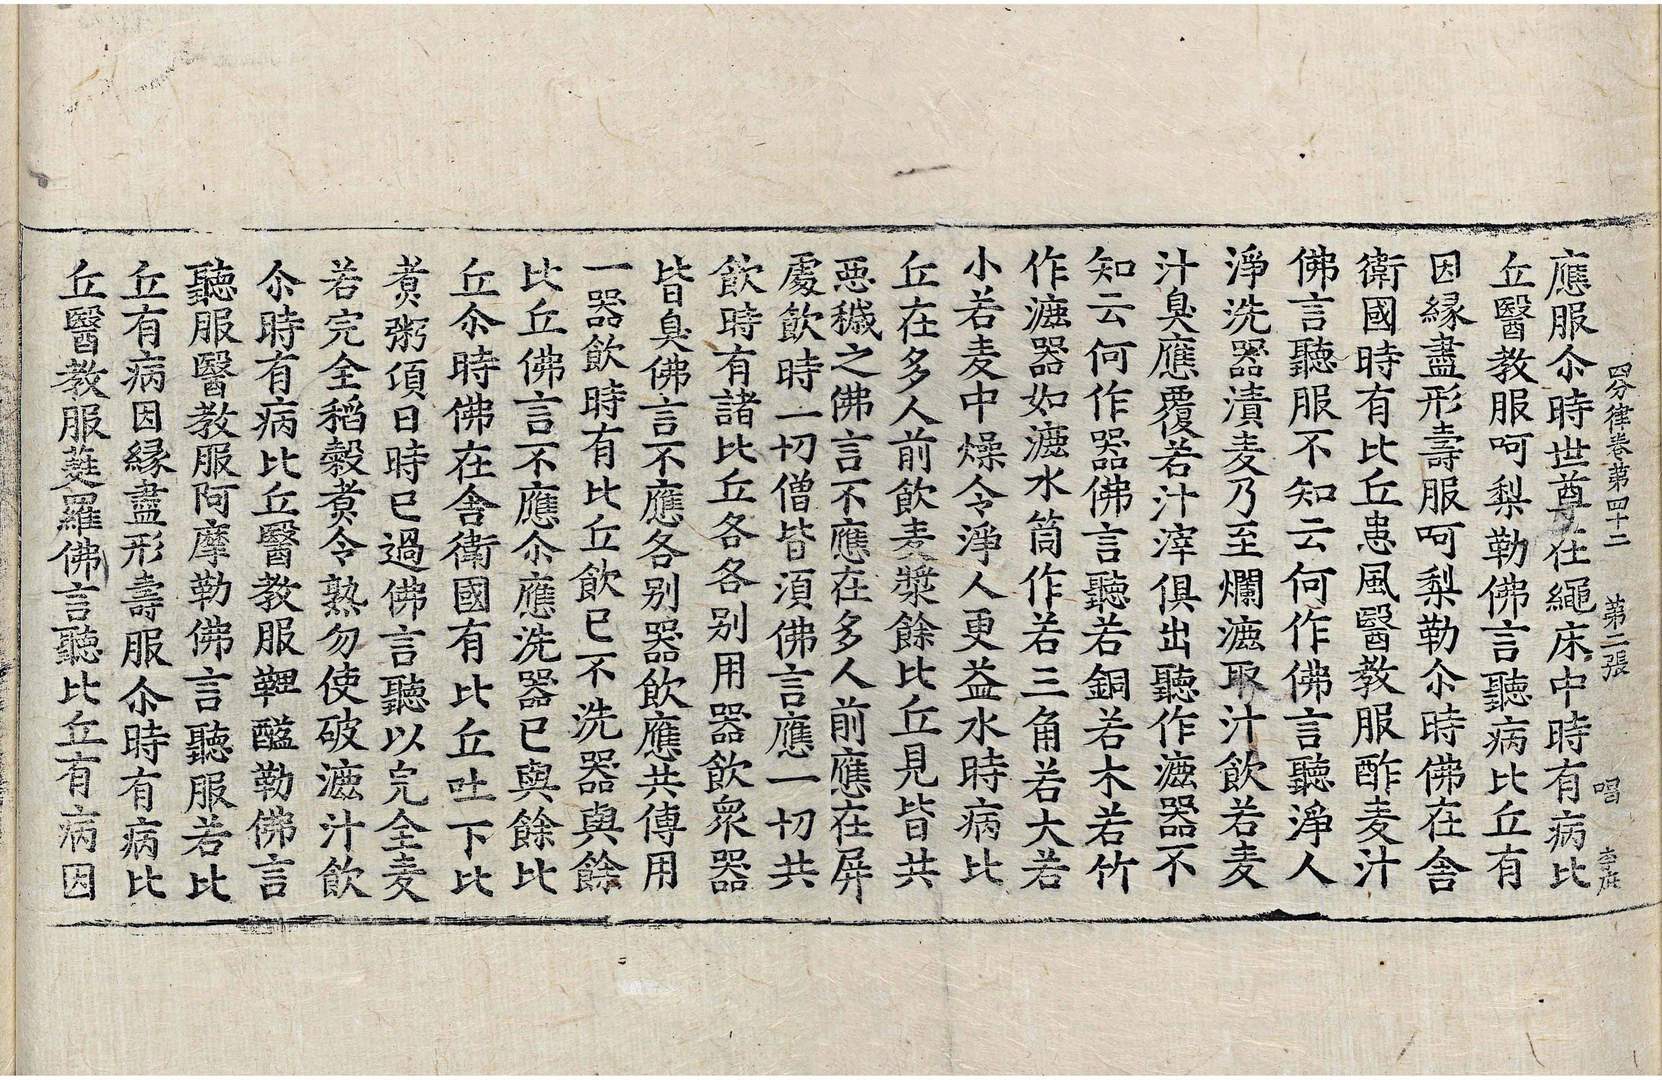 四分律卷第四十二 第二張 唱 李庇
應服尒時世尊在繩床中時有病比
丘醫教服呵梨勒佛言聽病比丘有
因緣盡形壽服呵梨勒尒時佛在舍
衛國時有比丘患風醫教服酢麦汁
佛言聽服不知云何作佛言聽淨人
淨洗器漬麦乃至爛漉取汁飲若麦
汁臭應覆若汁滓俱出聽作漉器不
知云何作器佛言聽若銅若木若竹
作漉器如漉水筒作若三角若大若
小若麦中燥令淨人更益水時病比
丘在多人前飲麦漿餘比丘見皆共
惡穢之佛言不應在多人前應在屏
處飲時一切僧皆須佛言應一切共
飲時有諸比丘各各别用器飲衆器
皆臭佛言不應各别器飲應共傳用
一器飲時有比丘飲已不洗器與餘
比丘佛言不應尒應洗器已與餘比
丘尒時佛在舍衛國有比丘吐下比
丘煑粥須日時已過佛言聽以完全麦
若完全稻穀煑令熟勿使破漉汁飲
尒時有病比丘醫教服鞞醯勒佛言
聽服醫教服阿摩勒佛言聽服若比
丘有病因緣盡形壽服尒時有病比
丘醫教服蓰羅佛言聽比丘有病因